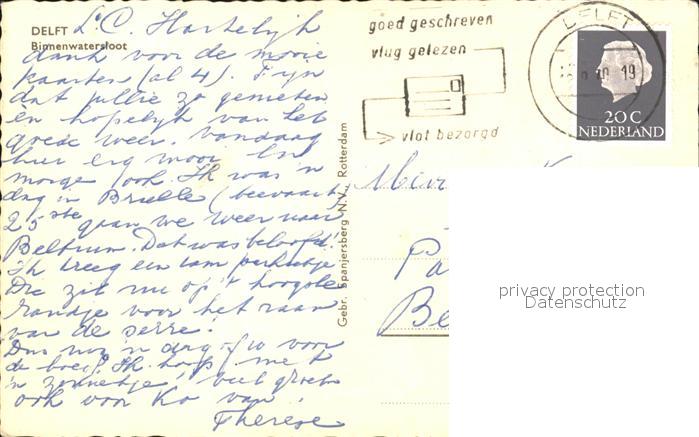 DELFT
Binnenwatersloot
L. C. Hartelijk
dank voor de mooie
kaarten (al 4). Fijn
dat jullie zo genieten
en hopelijk van het
goede weer. Vandaag
hier erg mooi en
morge ook. Ik was 'n
dag in Brielle (bevaart)
25ste gaan we weer naar
Beltrum. Dat was beloofd!
Ik kreeg een tam parkietje
Die zit nu op 't hoogste
randje voor het raam
van de serre!
Dus nog 'n dag of w voor
de boeg! Ik hoop met
'n zonnetje! veel groet
ook voor Ko van
Therese
Gebr. Spanjersberg N.V., Rotterdam
goed geschreven
vlug gelezen
vlot bezorgd
DELFT
19
20 C
NEDERLAND
Mevr
Pa
Be
privacy protection
Datenschutz